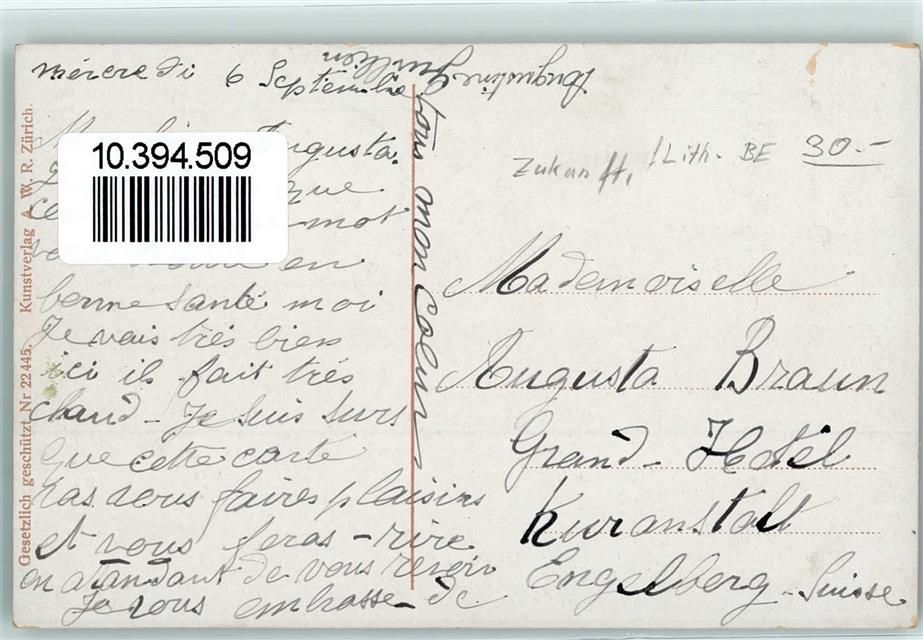 mércredi 6 Septembre
Augusta.
que
mot
en
bonne santé moi
Je vais très bien
ici il fait très
chaud - Je suis surs
Que cette carte
vas vous faires plaisirs
et vous feras - rire
en atandant de vous revoir
Je vous embrasse - de
tous mon coeur
Augustine
10.394.509
Zukunft, ! Lith. BE 30.-
Mademoiselle
Augusta Braun
Grand - Hotel
Kuranstalt
Engelberg - Suisse
Gesetzlich geschützt. Nr 22445. Kunstverlag A. W. R. Zürich.